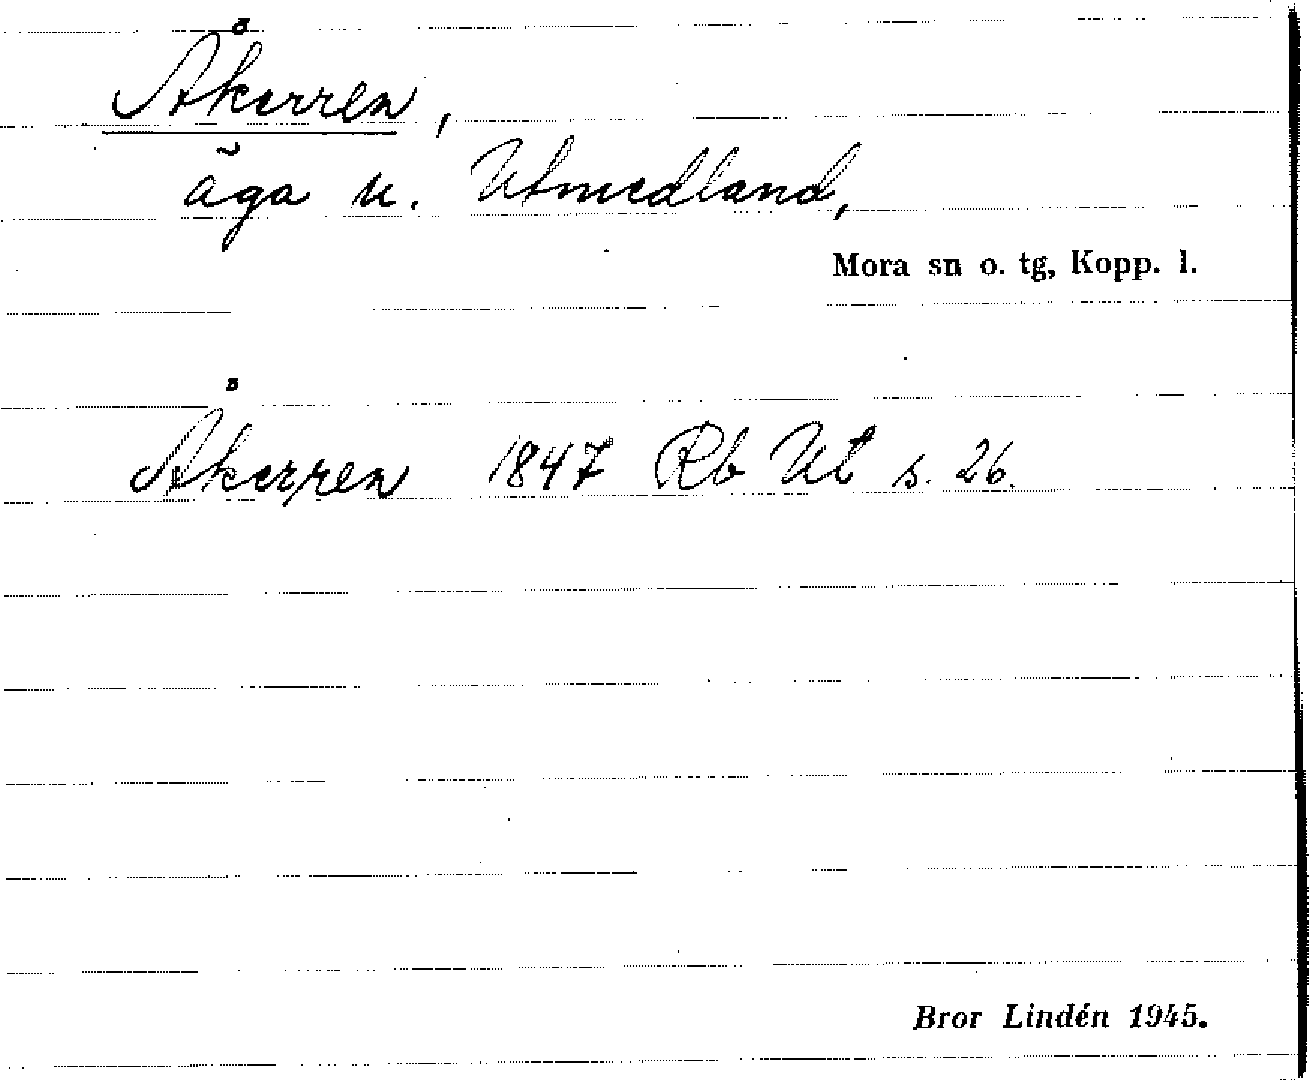 Åkerren,
äga u. Utmedland,
Mora sn o. tg, Kopp. l.
Åkerren 1847 Rb Ut s. 26.
Bror Lindén 1945.